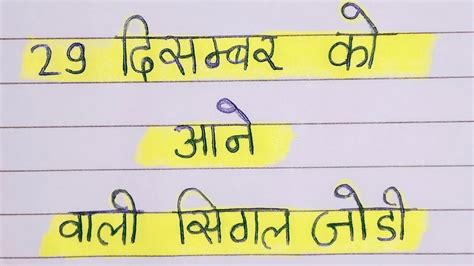 29 दिसम्बर को
आने
वाली सिगल जोडी